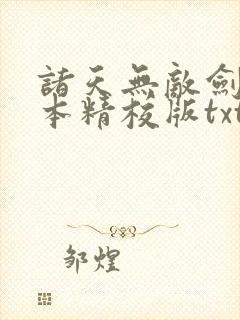 諸天無敵劍
本精校版txt
邹煌